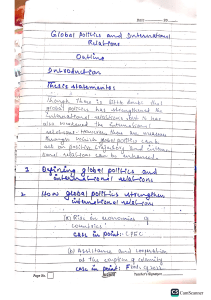 Date
Global politics and International
Relations
Outline
Introduction
Thesis statements
Though there is little doubt that
global politics has strengthened the
international relations, but it has
also weakened the international
relations. However there are measures
through which global politics can be
relations can be enhanced.
1 Defining global politics and
international relations
2 How global politics strengthen
international relations
(a) Rise in economies of
countries
Case in point: CPEC
(b) Assistance and cooperation
at the eruption of calamity
Case in point: Floods of 2022
Page No.
Teacher's Signature
CS CamScanner